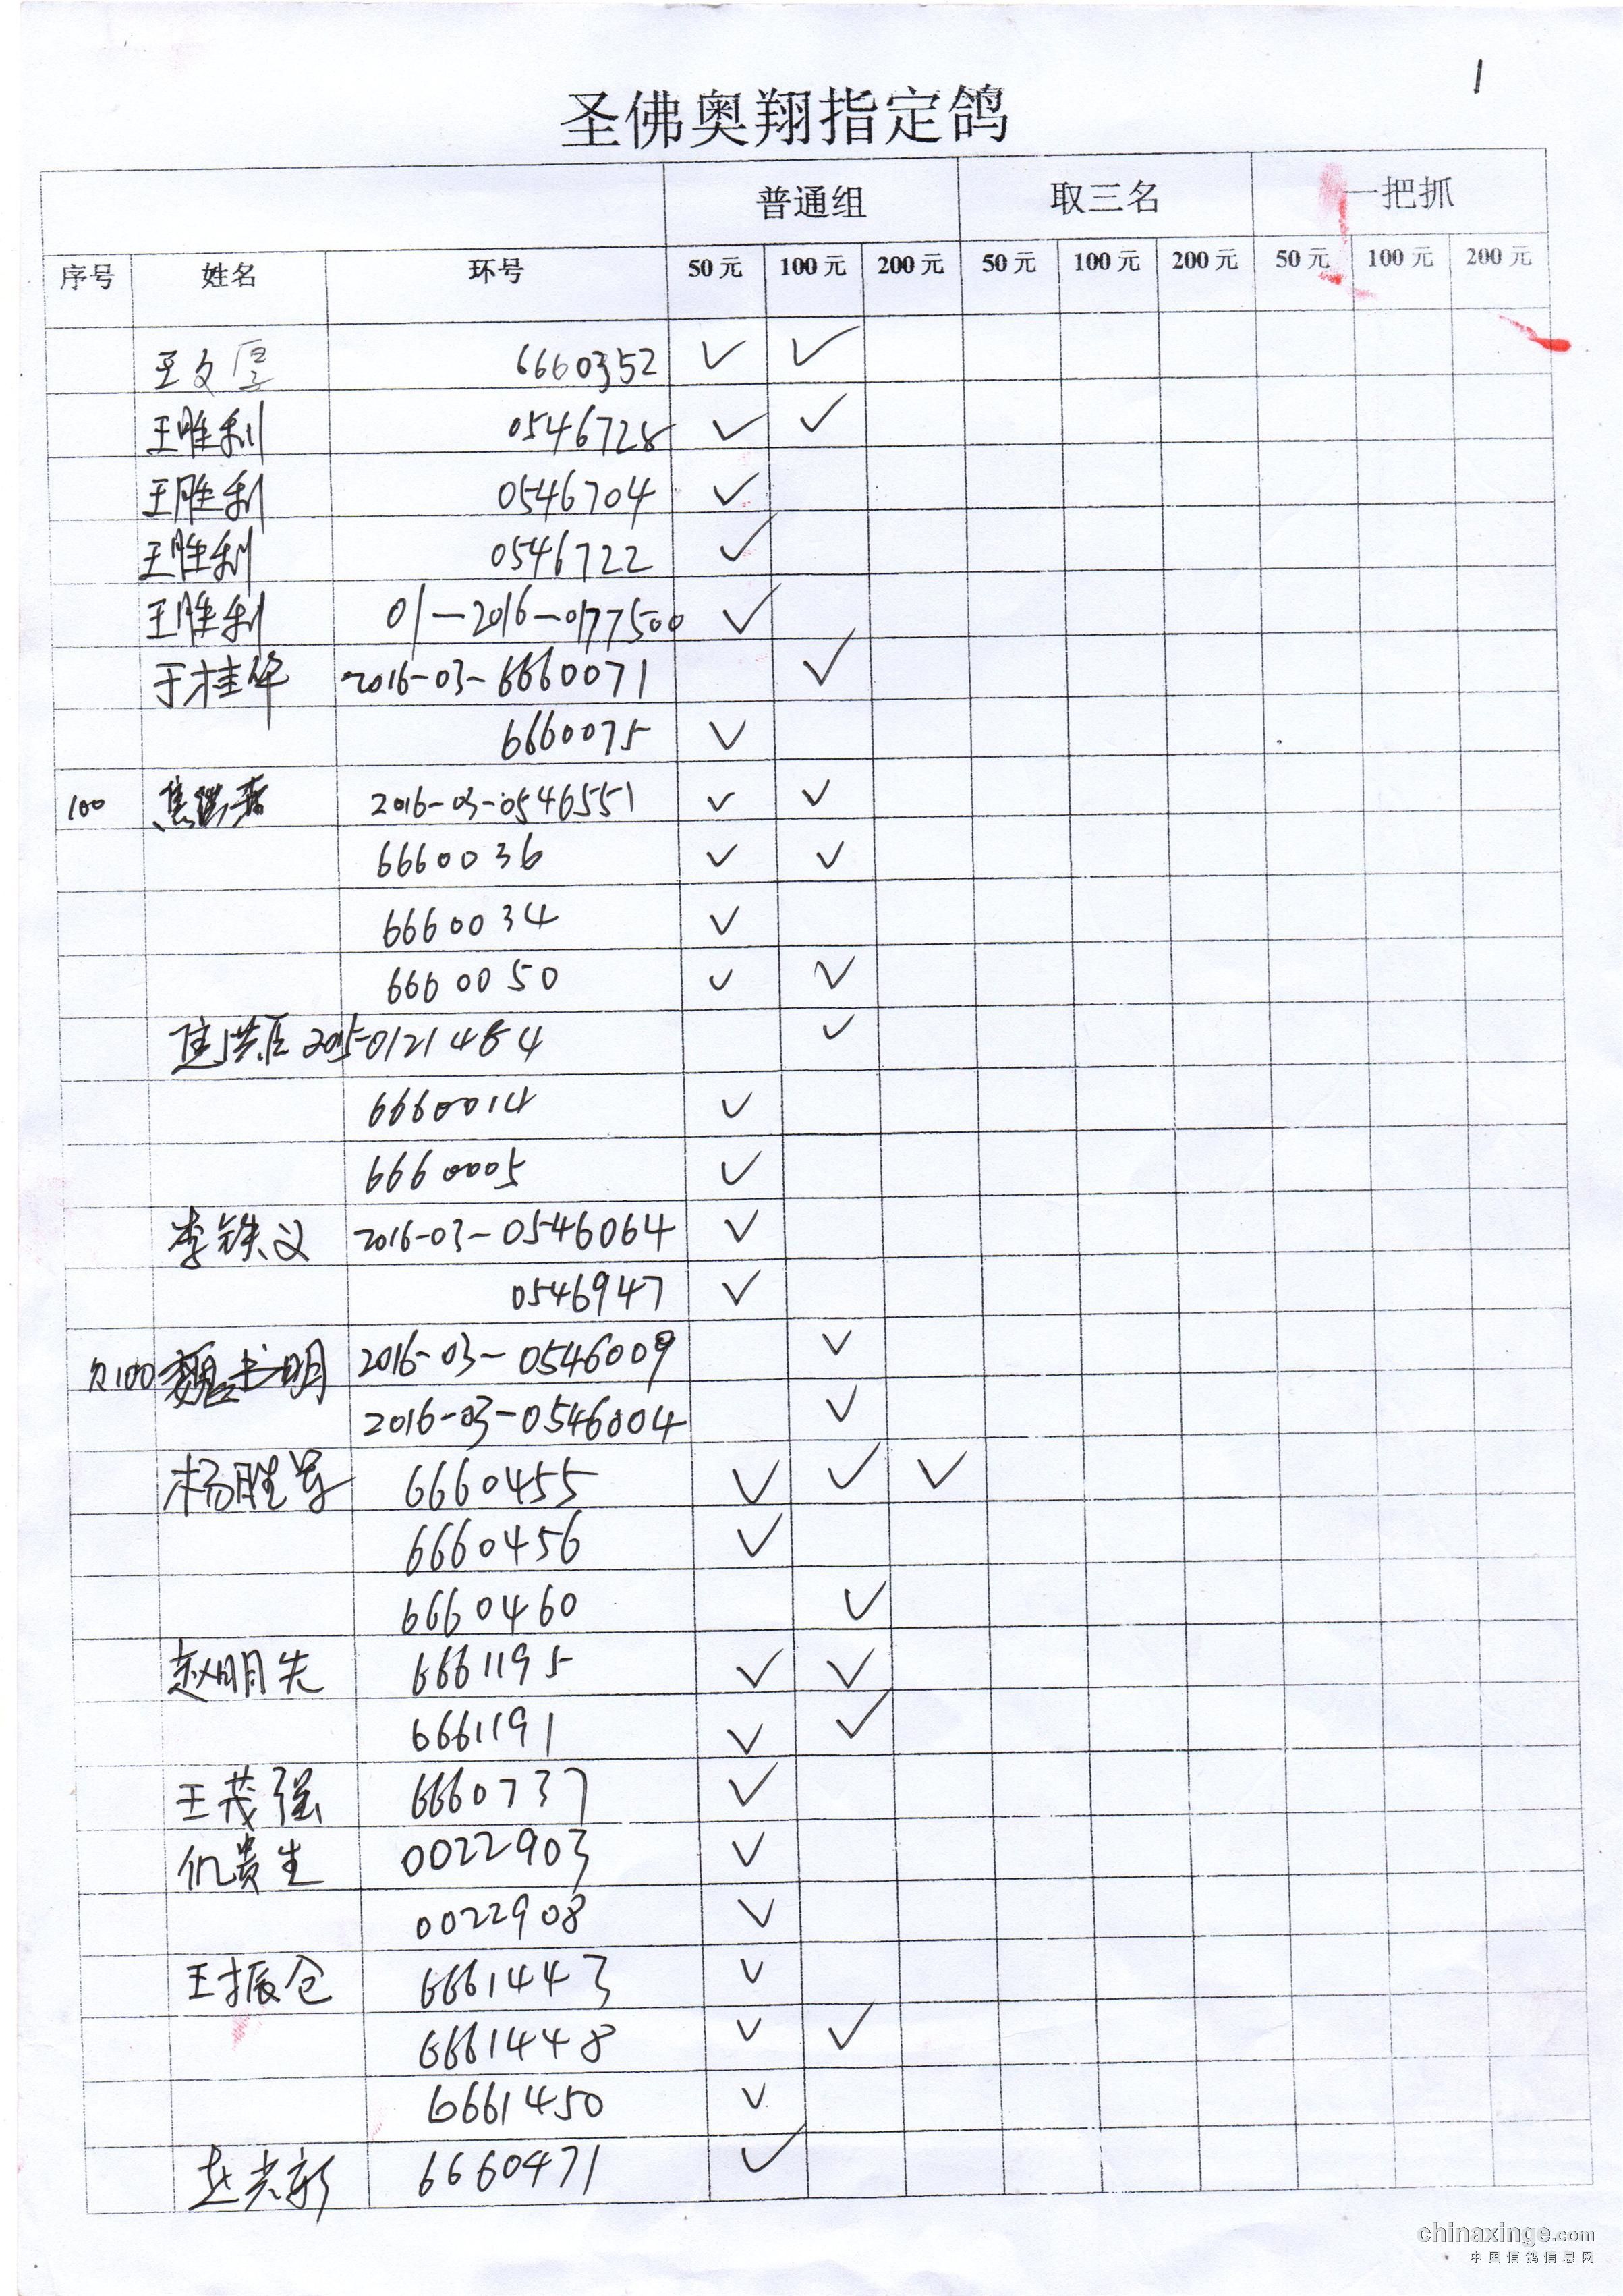 1
圣佛奥翔指定鸽
普通组 取三名 一把抓
序号 姓名 环号 50元 100元 200元 50元 100元 200元 50元 100元 200元
王文厚 6660352 ✓ ✓
王胜利 0546728 ✓ ✓
王胜利 0546704 ✓
王胜利 0546722 ✓
王胜利 01—2016—0177500 ✓
于桂华 2016-03-6660071 ✓
6660075 ✓
100 焦 2016-03-0546551 ✓ ✓
6660036 ✓ ✓
6660034 ✓
6660050 ✓ ✓
2015-0121484 ✓
6660014 ✓
6660005 ✓
李铁义 2016-03-0546064 ✓
0546947 ✓
欠100 魏书明 2016-03-0546009 ✓
2016-03-0546004 ✓
杨胜 6660455 ✓ ✓ ✓
6660456 ✓
6660460 ✓
赵明先 6661195 ✓ ✓
6661191 ✓ ✓
王茂强 6660737 ✓
仉贵生 0022903 ✓
0022908 ✓
王振仓 6661443 ✓
6661448 ✓ ✓
6661450 ✓
赵光新 6660471 ✓
chinaxinge.com
中国信鸽信息网